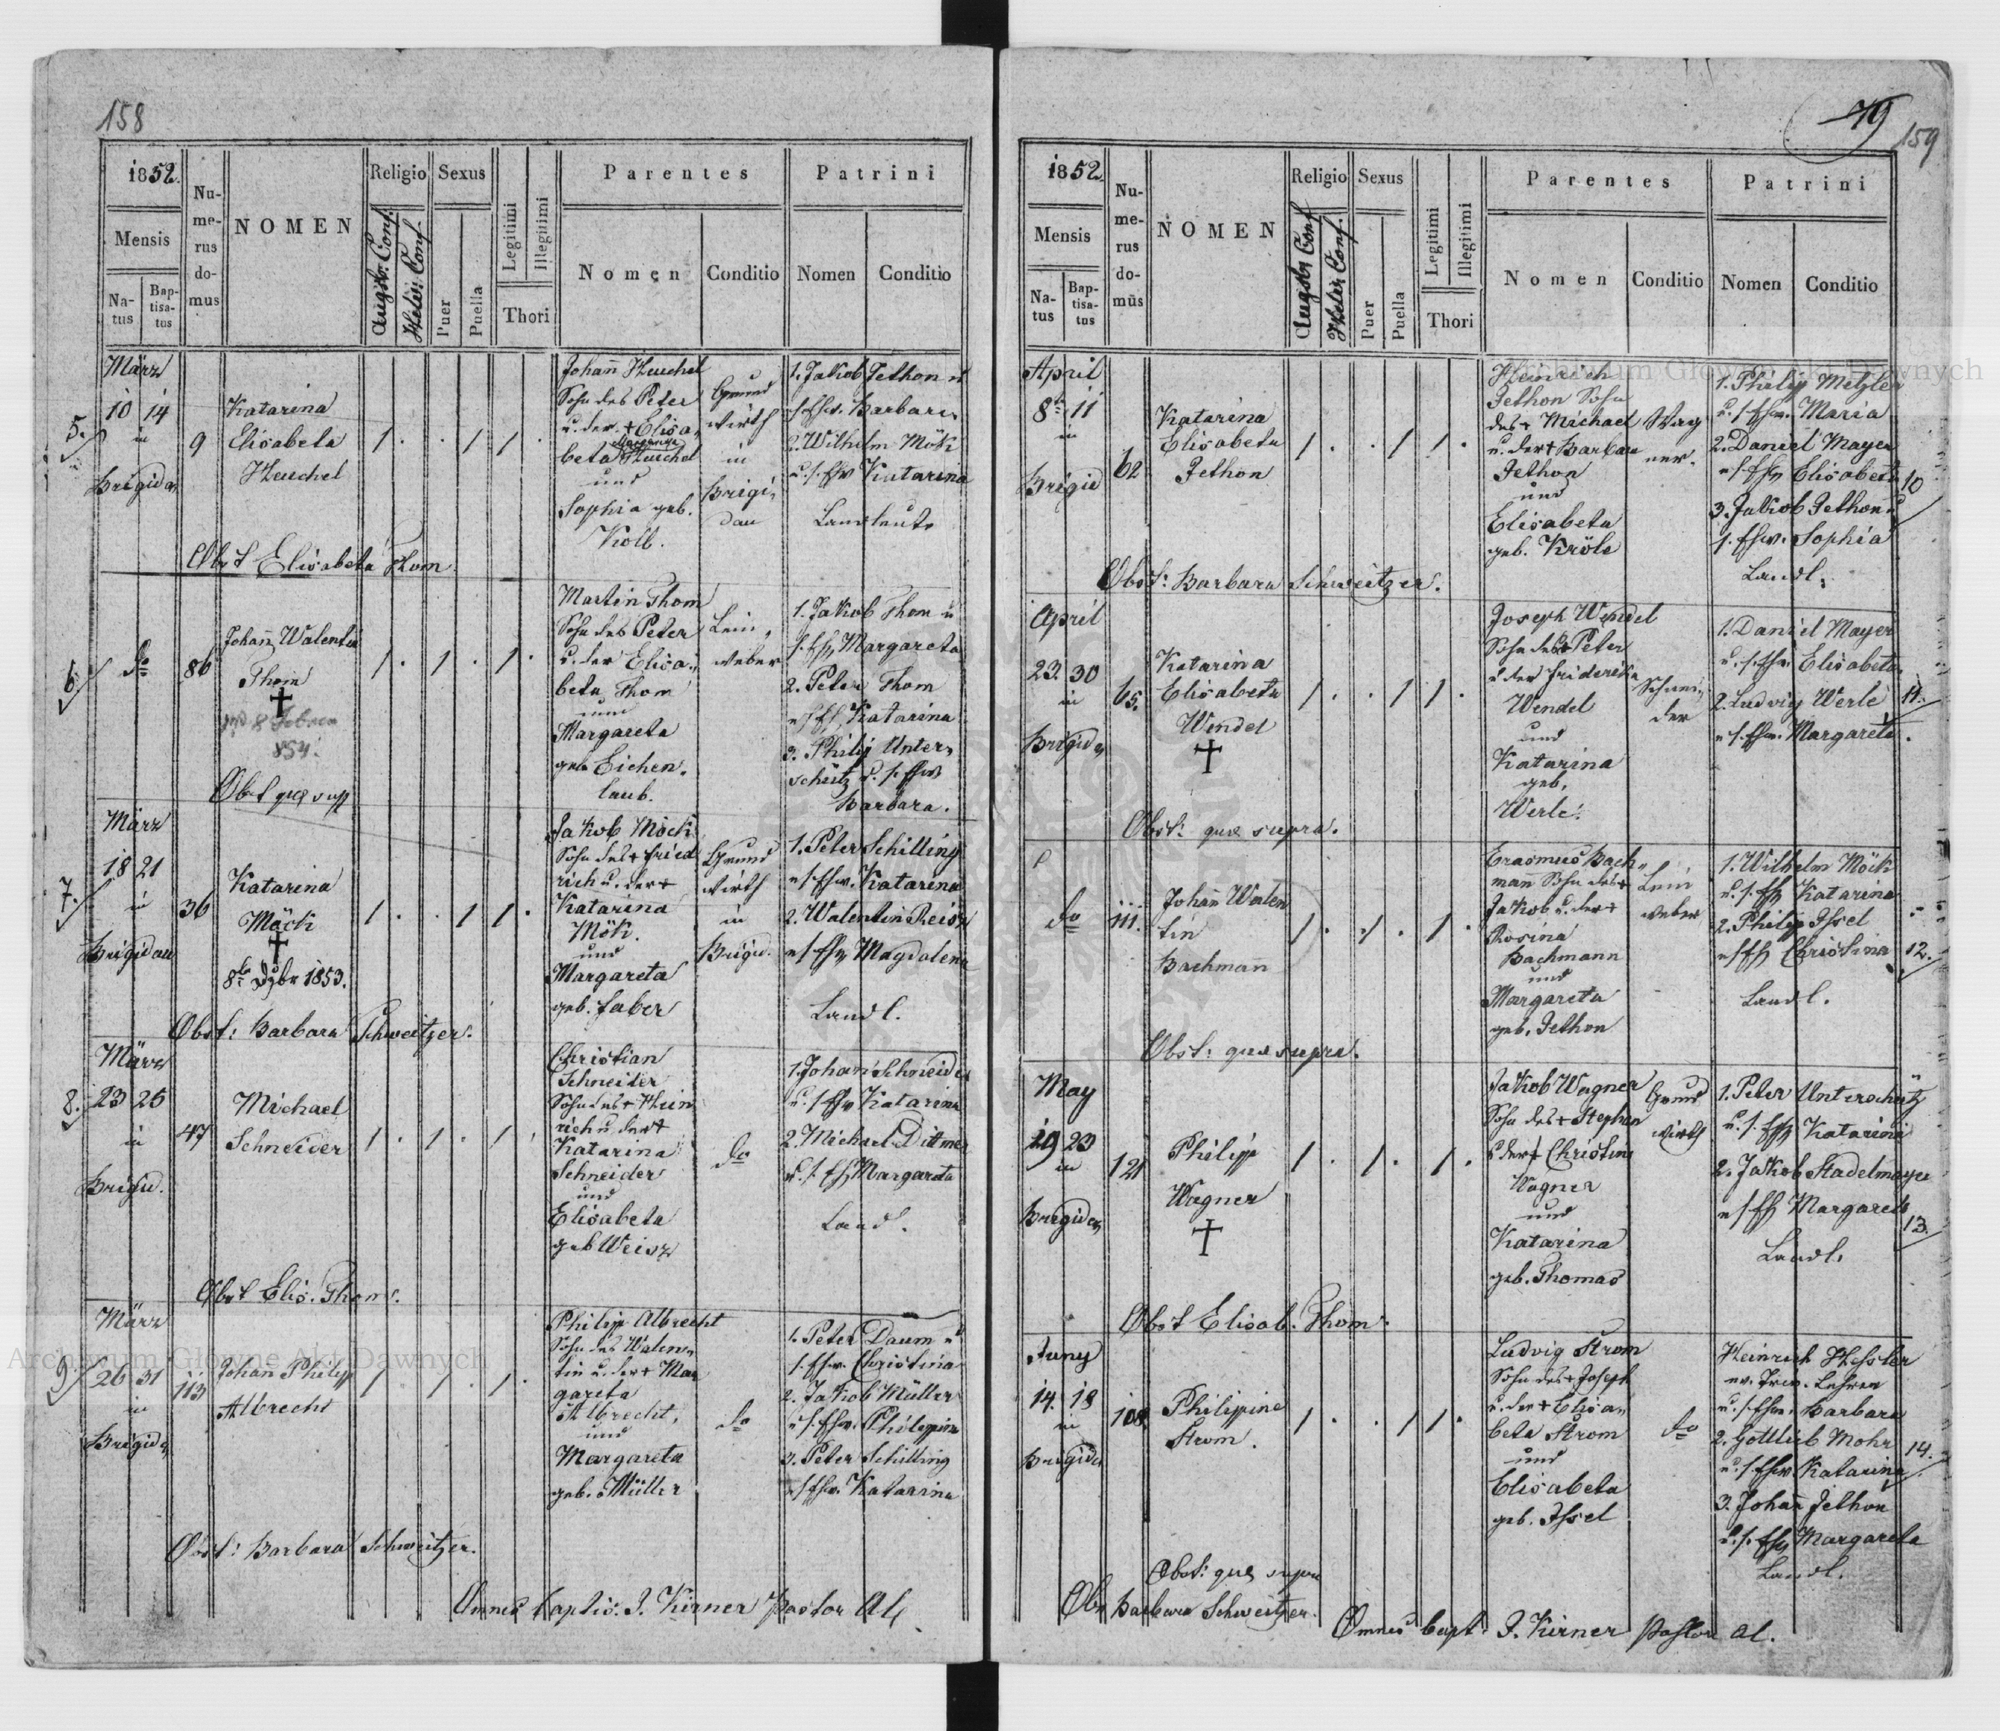 158
1852.
Mensis
Natus
Baptisatus
Numerus domus
NOMEN
Religio
Augsb. Conf.
Helv. Conf.
Sexus
Puer
Puella
Legitimi
Illegitimi
Thori
Parentes
Nomen
Conditio
Patrini
Nomen
Conditio
5.
März
10 14
in
Brigidau
9
Katarina
Elisabeta
Heuchel
1 . . 1 1 .
Johañ Heuchel
Sohn des Peter
u. der + Elisa
beta Heuchel
und
Sophia geb.
Kolb.
Grund
wirth
in
Brigi
dau
1. Jakob Jethon u
s. Ehw. Barbara
2. Wilhelm Mök
u. s. Ehw Katarina
Landleute
Obst Elisabeta Thom
6.
do
86
Johañ Walentin
Thom
†
8 Febru
854.
1 . 1 . 1 .
Martin Thom
Sohn des Peter
u. der Elisa
beta Thom
und
Margareta
geb Eichen
laub.
Lein
weber
1. Jakob Thom u
s. Ehw Margareta
2. Peter Thom
u s Ehw Katarina
3. Philip Unter
schütz u. s. Ehw
Barbara.
Obst quæ sup
7.
März
18 21
in
Brigidau
36
Katarina
Möck
†
8t. Dzbr 1853.
1 . . 1 1 .
Jakob Möck
Sohn des + Fried
rich u. der +
Katarina
Mök.
und
Margareta
geb. Faber
Grund
wirth
in
Brigid.
1. Peter Schilling
u s Ehw. Katarina
2. Walentin Reisz
u s Ehw Magdalena
Landl.
Obst: Barbara Schweitzer.
8.
März
23 25
in
Brigid.
47
Michael
Schneider
1 . 1 . 1 .
Christian
Schneiter
Sohn des + Hein
rich u. der +
Katarina
Schneider
und
Elisabeta
geb Weisz
do
1. Johan Schneider
u. s Ehw Katarina
2. Michael Ditmer
u. s. Ehw Margareta
Landl.
Obst Elis. Thom.
9
März
26 31
in
Brigid
113
Johan Philip
Albrecht
1 . 1 . 1 .
Philip Albrecht
Sohn des Walen
tin u. der + Mar
gareta
Albrecht,
und
Margareta
geb. Müller
do
1. Peter Daum u
s. Ehw. Christina
2. Jakob Müller
u s. Ehw. Philippina
3. Peter Schilling
u s Ehw. Katarina
Obst: Barbara Schweitzer.
Omnes baptis. J. Kirner Pastor
79
159
1852.
Mensis
Natus
Baptisatus
Numerus domus
NOMEN
Religio
Augsb. Conf.
Helv. Conf.
Sexus
Puer
Puella
Legitimi
Illegitimi
Thori
Parentes
Nomen
Conditio
Patrini
Nomen
Conditio
April
8t. 11
in
Brigid
62
Katarina
Elisabeta
Jethon
1 . . 1 1 .
Heinrich
Jethon Sohn
des + Michael
u. der + Barbara
Jethon
und
Elisabeta
geb. Kröle
Wag
ner.
1. Philip Metzler
u. s Ehw. Maria
2. Daniel Mayer
u s Ehw Elisabeta
3. Jakob Jethon u
s. Ehw. Sophia
Landl.
10
Obst: Barbara Schweitzer.
April
23. 30
in
Brigid
65.
Katarina
Elisabeta
Wendel
†
1 . . 1 1 .
Joseph Wendel
Sohn des Peter
u der Friderika
Wendel
und
Katarina
geb,
Werle.
Schnei
der
1. Daniel Mayer
u. s. Ehw. Elisabeta
2. Ludvig Werle
u s. Ehw. Margareta.
11.
Obst: quæ supra.
do
111.
Johañ Walen
tin
Bachmañ
1 . 1 . 1 .
Erasmus Bach
mañ Sohn des +
Jakob u. der +
Rosina
Bachmann
und
Margareta
geb. Jethon
Lein
weber
1. Wilhelm Möck
u. s. Ehw Katarina
2. Philip Issel
u s Ehw Christina
Landl.
12.
Obst: quæ supra.
May
19 23
in
Brigid
121
Philipp
Wagner
†
1 . 1 . 1 .
Jakob Wagner
Sohn des + Stephan
u der + Christina
Wagner
und
Katarina
geb. Thomas
Grund
wirth
1. Peter Unterschütz
u. s. Ehw Katarina
2. Jakob Stadelmayer
u s Ehw Margareta
Landl.
13.
Obst Elisab. Thom.
Juny
14. 18
in
Brigid
108
Philippine
Strom.
1 . . 1 1 .
Ludvig Strom
Sohn des + Joseph
u. der + Elisa
beta Strom
und
Elisabeta
geb. Issel
do
Heinrich Hessler
Lehrer
u. s Ehw. Barbara
2. Gottlieb Mohr
u. s Ehw Katarina
3. Johañ Jethon
u. s. Ehw Margareta
Landl.
14.
Obst: quæ supra
Obs Barbara Schweitzer.
Omnes bapt. J. Kirner Pastor
Archiwum Główne Akt Dawnych
Archiwum Główne Akt Dawnych